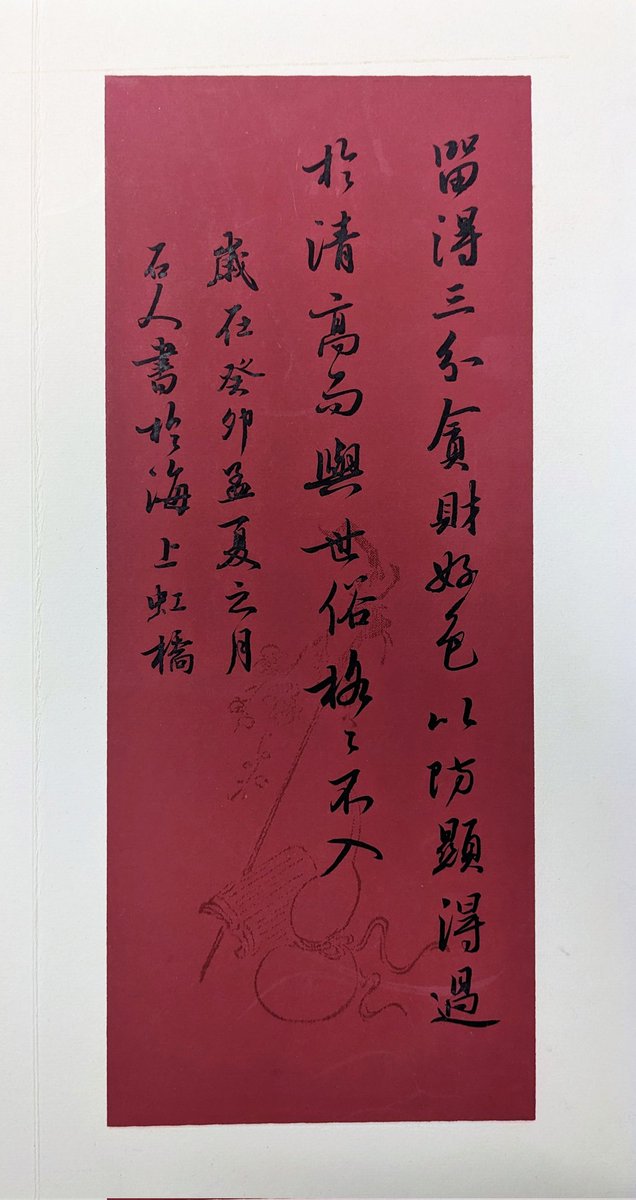 留得三分貪財好色以防顯得過
於清高而與世俗格〻不入
歲在癸卯孟夏之月
石人書於海上虹橋